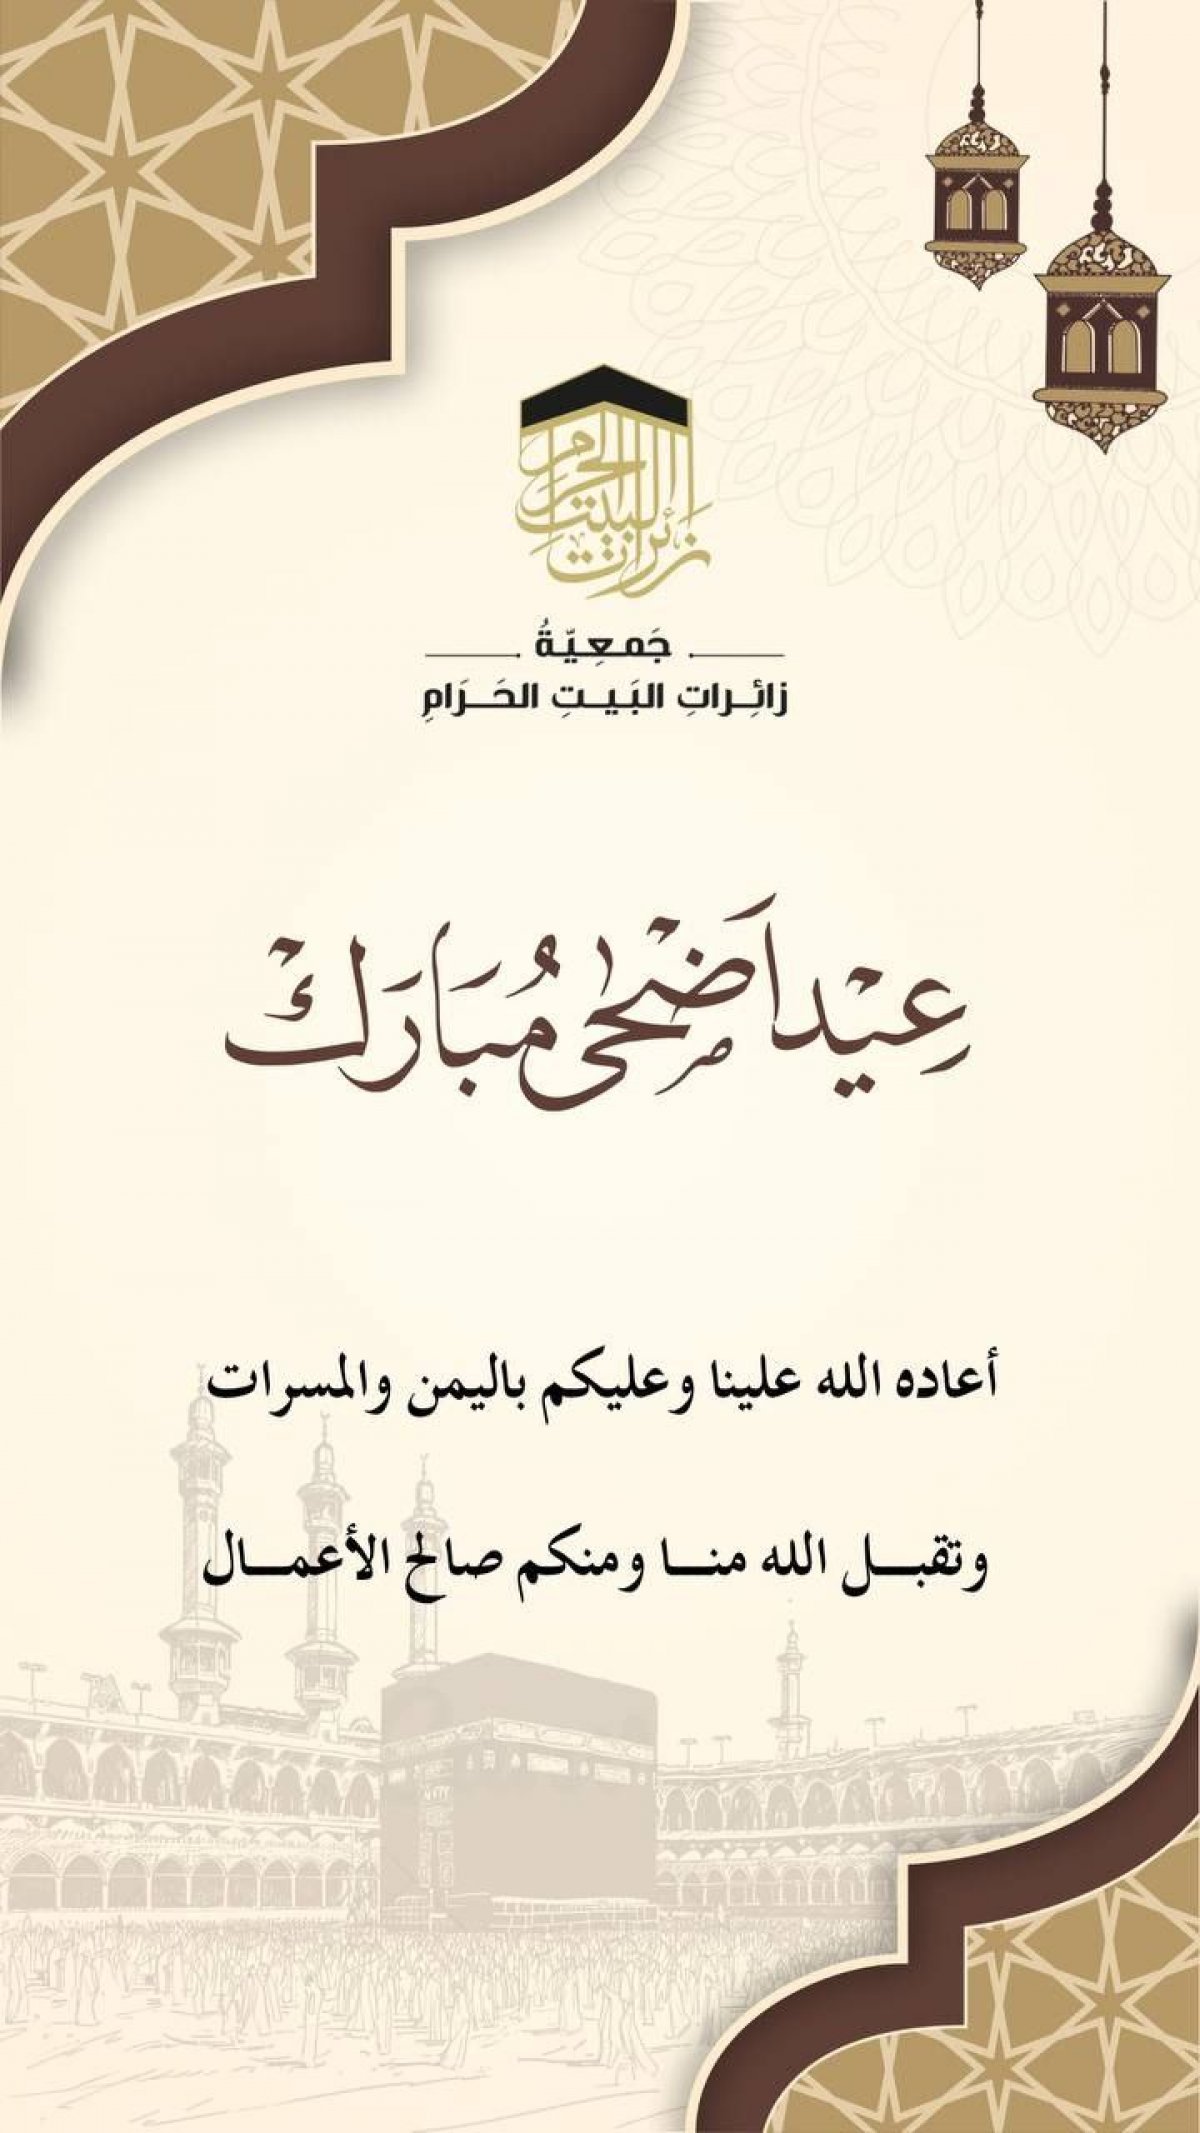 زائرات البيت الحرام
جَمعِيّةُ
زائِراتِ البَيتِ الحَرَامِ
عِيْد اَضْحٰى مُبَارَكْ
أعاده الله علينا وعليكم باليمن والمسرات
وتقبـل الله منـا ومنكم صالح الأعمـال